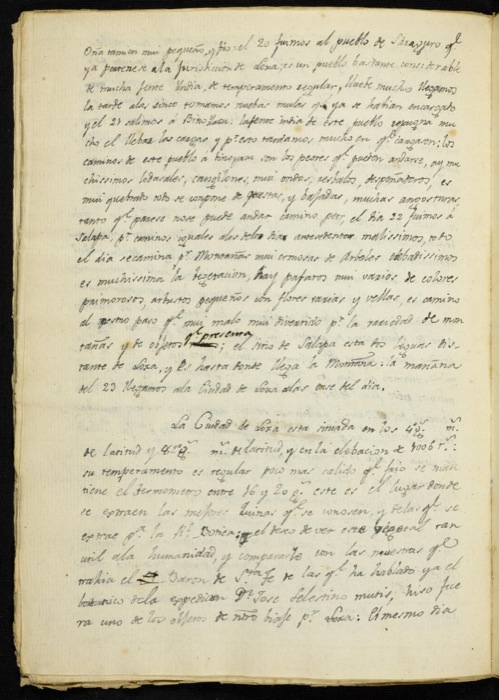 Oña tambien mui pequeño, y frio: el 20 fuimos al pueblo de Saraguro q.e
ya pertenese a la Jurisdicion de Loxa; es un pueblo bastante considerable
de mucha jente India, de temperamento regular, llueve mucho llegamos
la tarde a las sinco tomamos nuebas mulas q.e ya se habian encargado
y el 21 salimos á la jente india de este pueblo repugna mu
cho el llebar las cargas y p.r esto tardamos mucho en q.e cargasen: los
caminos de este pueblo á son los peores q.e pueden andarse, ay mu
chissimos lodasales, cangilones, mui ondos, resbalos, despeñaderos, es
mui quebrado todo se conpone de cuestas, y bajadas, muchas angosturas,
tanto q.e parese no se puede andar camino peor, el dia 22 fuimos á
Salapa, p.r caminos iguales a los del dia antesedente malissimos, todo
el dia se camina p.r Montañas mui ermosas de Arboles
es muchissima la vegetacion, hay pajaros mui varios de colores
primorosos, arbustos pequeños con flores raras y vellas, es camino
al mesmo paso q.e mui malo mui divertido p.r la variedad de mon
tañas y de objetos q.e presenta; el sitio de Salapa esta dos leguas dis
tante de Loxa, y es hasta donde llega la Montaña: la mañana
del 23 llegamos a la Ciudad de Loxa a las onse del dia.
La Ciudad de Loxa esta situada en los 4º g.s m.
de latitud, y g.s m. de latitud, y en la elebacion de 1006 t.s:
su temperamento es regular pero mas calido q.e frio se man
tiene el termometro entre 16 y 20 g.s este es el lugar donde
se extraen las mejores Quinas q.e se conosen, y de las q.e se
extrae p.a la R.l Botica, el deseo de ver este vegetal tan
util a la humanidad, y compararle con las nuestras q.e
trahia el Baron de S.ta Fe de las q.e ha hablado ya el
botanico de la expedicion D.n Jose Selestino mutis, hiso fue
ra uno de los objetos de nro biaje p.r Loxa: El mesmo dia